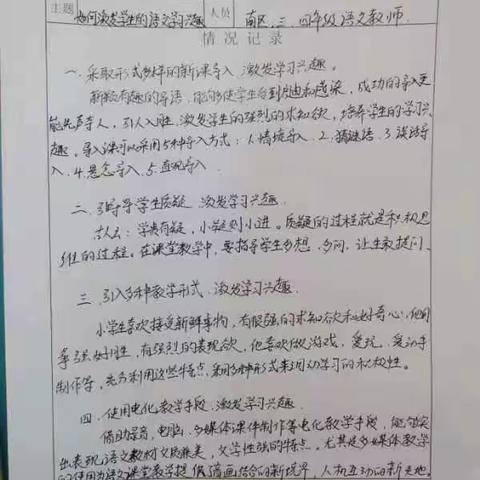 主题 如何激发学生的语文学习兴趣 人员 南区三、四年级语文教师
情况记录
一、采取形式多样的新课导入,激发学习兴趣。
新颖有趣的导语,能够使学生受到启迪和感染,成功的导入更
能先声夺人,引人入胜,激发学生的强烈的求知欲,培养学生的学习兴
趣。导入课可以采用5种导入方式:1.情境导入 2.猜谜语 3.谈话导
入 4.悬念导入 5.直观导入
二、引导学生质疑 激发学习兴趣
古人云:学贵有疑,小疑则小进。质疑的过程就是积极思
维的过程。在课堂教学中,要指导学生多想、多问,让生敢提问、
三、引入多种教学形式,激发学习兴趣
小学生喜欢接受新鲜事物,有很强的求知欲和好奇心,他们
争强好胜,有强烈的表现欲,他喜欢做游戏,爱玩,爱动手
制作等,充分利用这些特点,采用多种形式来调动学习的积极性。
四、使用电化教学手段,激发学习兴趣
借助录音,电脑,多媒体课件制作等电化教学手段,能够突
出表现语文教材文质兼美,文学性强的特点。尤其是多媒体教学
的使用为语文课堂教学提供情画结合的新境界,人机互动的新天地。